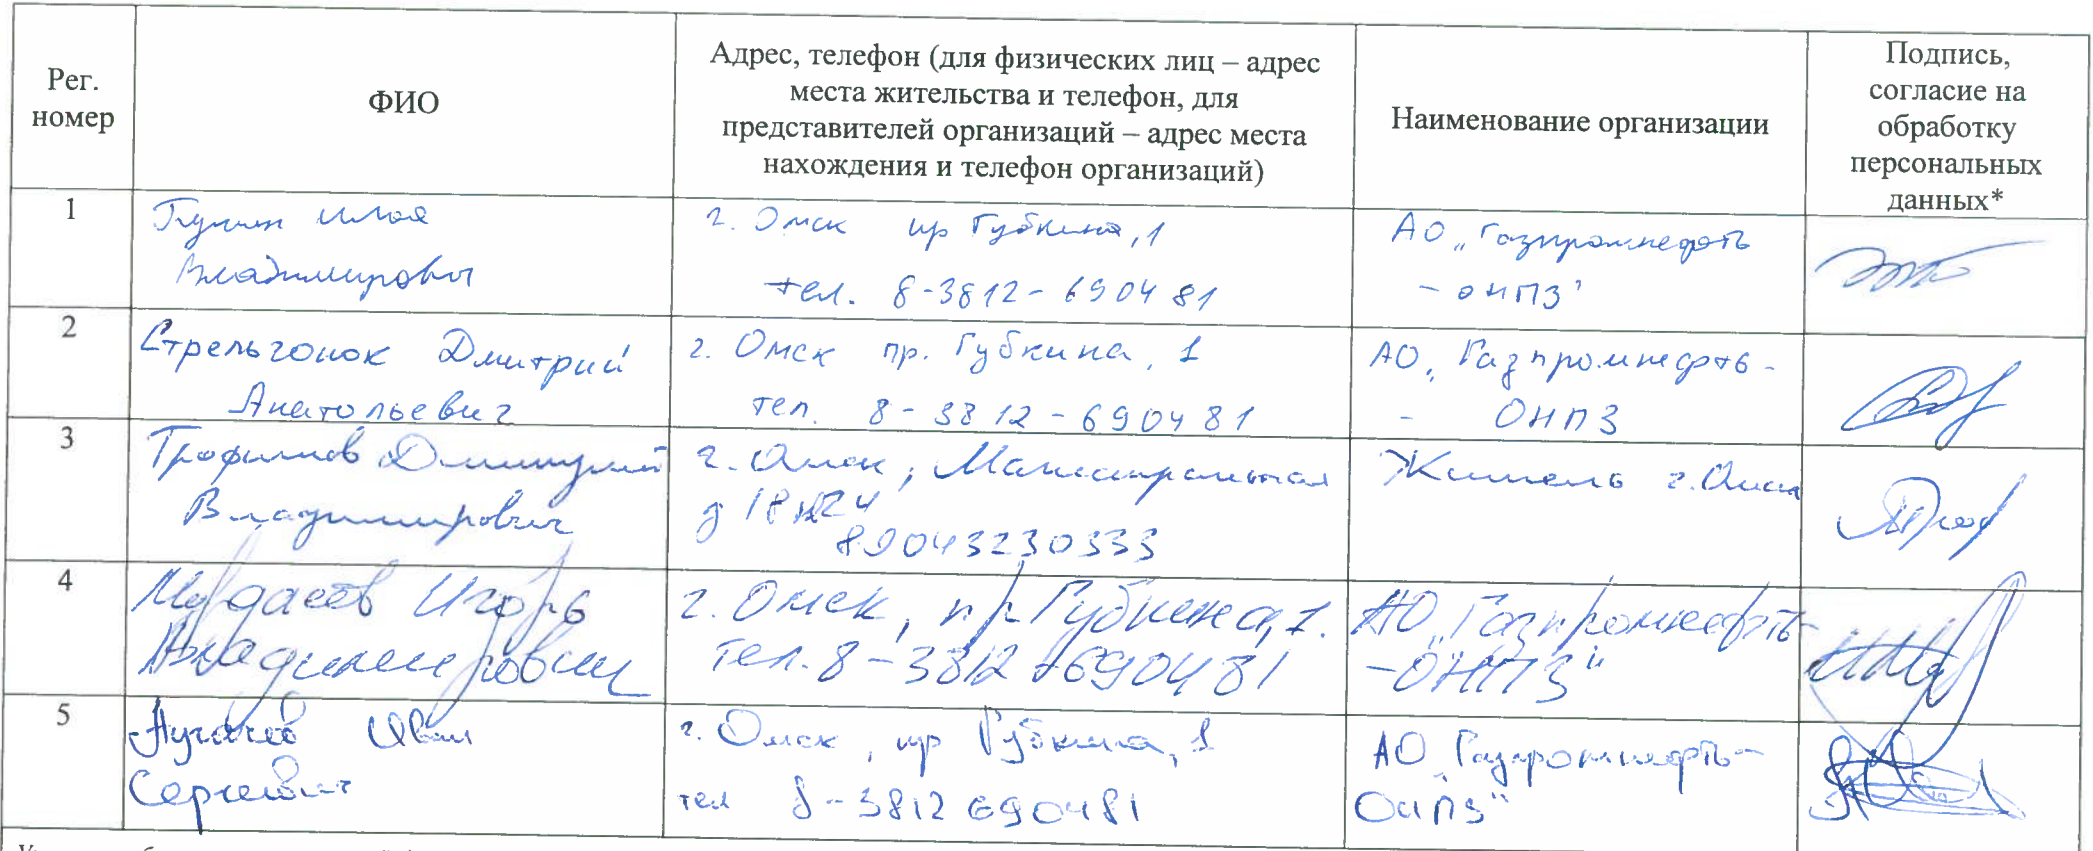 Рег.
номер
ФИО
Адрес, телефон (для физических лиц – адрес
места жительства и телефон, для
представителей организаций – адрес места
нахождения и телефон организаций)
Наименование организации
Подпись,
согласие на
обработку
персональных
данных*
1
Илья
Владимирович
г. Омск пр Губкина, 1
тел. 8-3812-690481
АО „Газпромнефть
- ОНПЗ"
2
Стрельгонок Дмитрий
Анатольевич
г. Омск пр. Губкина, 1
тел. 8-3812-690481
АО „Газпромнефть-
- ОНПЗ
3
Трофимов Дмитрий
Владимирович
г. Омск, Магистральная
д 18
89043230333
Житель г. Омска
4
Мурдасов Игорь
Владимирович
г. Омск, пр Губкина, 1.
тел. 8-3812-690481
АО „Газпромнефть-
-ОНПЗ"
5
Пугачев Иван
Сергеевич
г. Омск, пр Губкина, 1
тел 8-3812 690481
АО „Газпромнефть-
ОНПЗ"